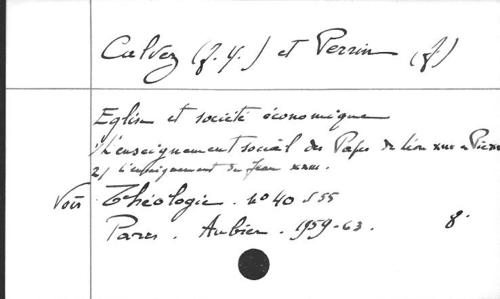 Calvez (J. Y.) et Perrin (J)
Eglise et société économique
1/ L'enseignement social des Papes de Léon XIII à Pie XII
2/ L'enseignement de Jean XXIII.
Voir Théologie. nº 40 555
Paris. Aubier. 1959-63. 8º